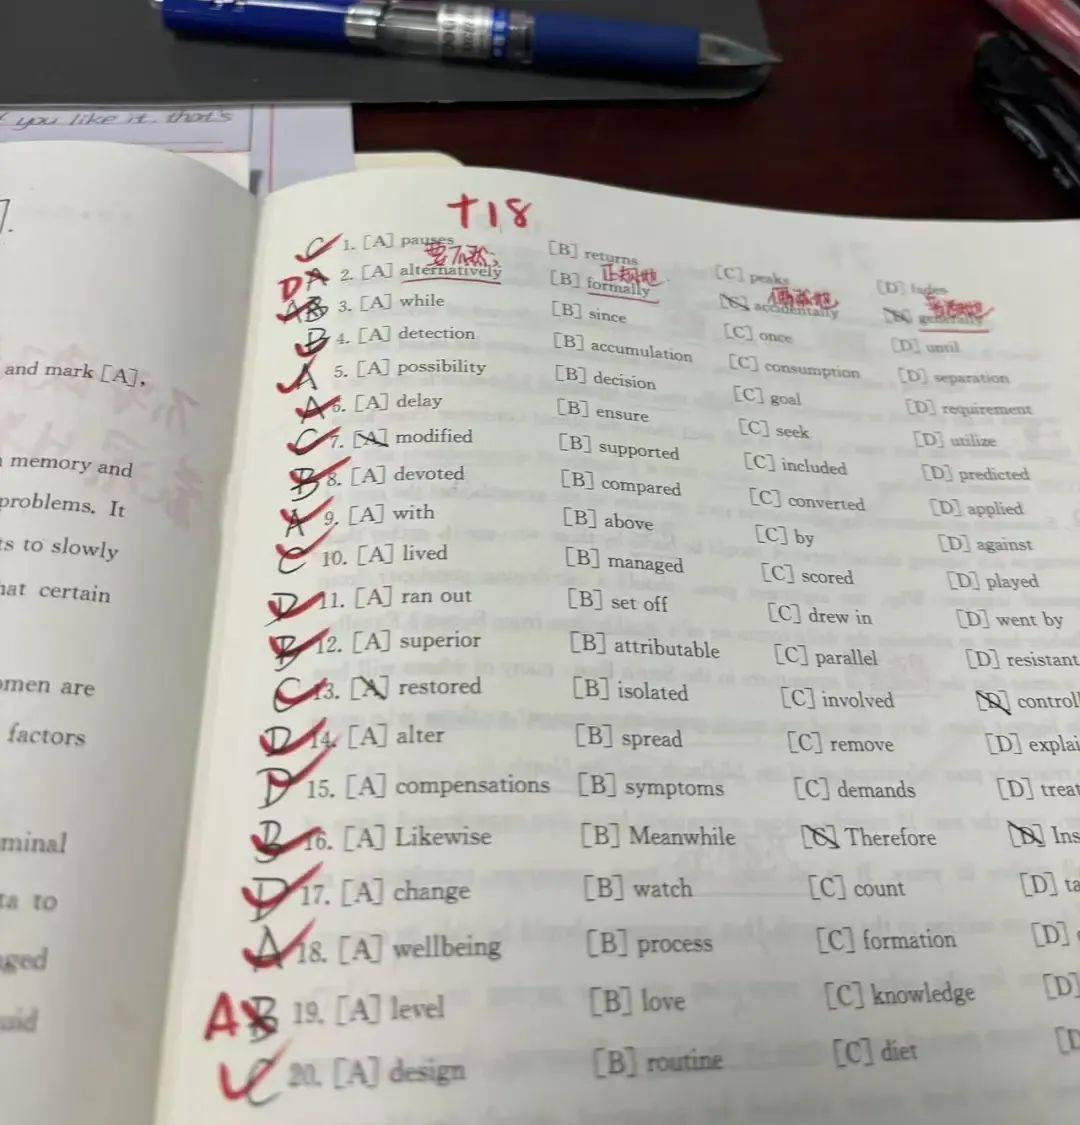 you like it. that's
+18
and mark [A],
memory and
problems. It
ts to slowly
hat certain
omen are
factors
minal
ta to
ged
uid
C 1. [A] pauses [B] returns [C] peaks [D] fades
要不然;
正规地
偶然地
D A 2. [A] alternatively [B] formally [C] accidentally [D] generally
A B 3. [A] while [B] since [C] once [D] until
B 4. [A] detection [B] accumulation [C] consumption [D] separation
A 5. [A] possibility [B] decision [C] goal [D] requirement
A 6. [A] delay [B] ensure [C] seek [D] utilize
C 7. [A] modified [B] supported [C] included [D] predicted
B 8. [A] devoted [B] compared [C] converted [D] applied
A 9. [A] with [B] above [C] by [D] against
C 10. [A] lived [B] managed [C] scored [D] played
D 11. [A] ran out [B] set off [C] drew in [D] went by
B 12. [A] superior [B] attributable [C] parallel [D] resistant
C 13. [A] restored [B] isolated [C] involved [D] control
D 14. [A] alter [B] spread [C] remove [D] explai
D 15. [A] compensations [B] symptoms [C] demands [D] treat
B 16. [A] Likewise [B] Meanwhile [C] Therefore [D] Ins
D 17. [A] change [B] watch [C] count [D] ta
A 18. [A] wellbeing [B] process [C] formation [D]
A B 19. [A] level [B] love [C] knowledge [D]
C 20. [A] design [B] routine [C] diet [D